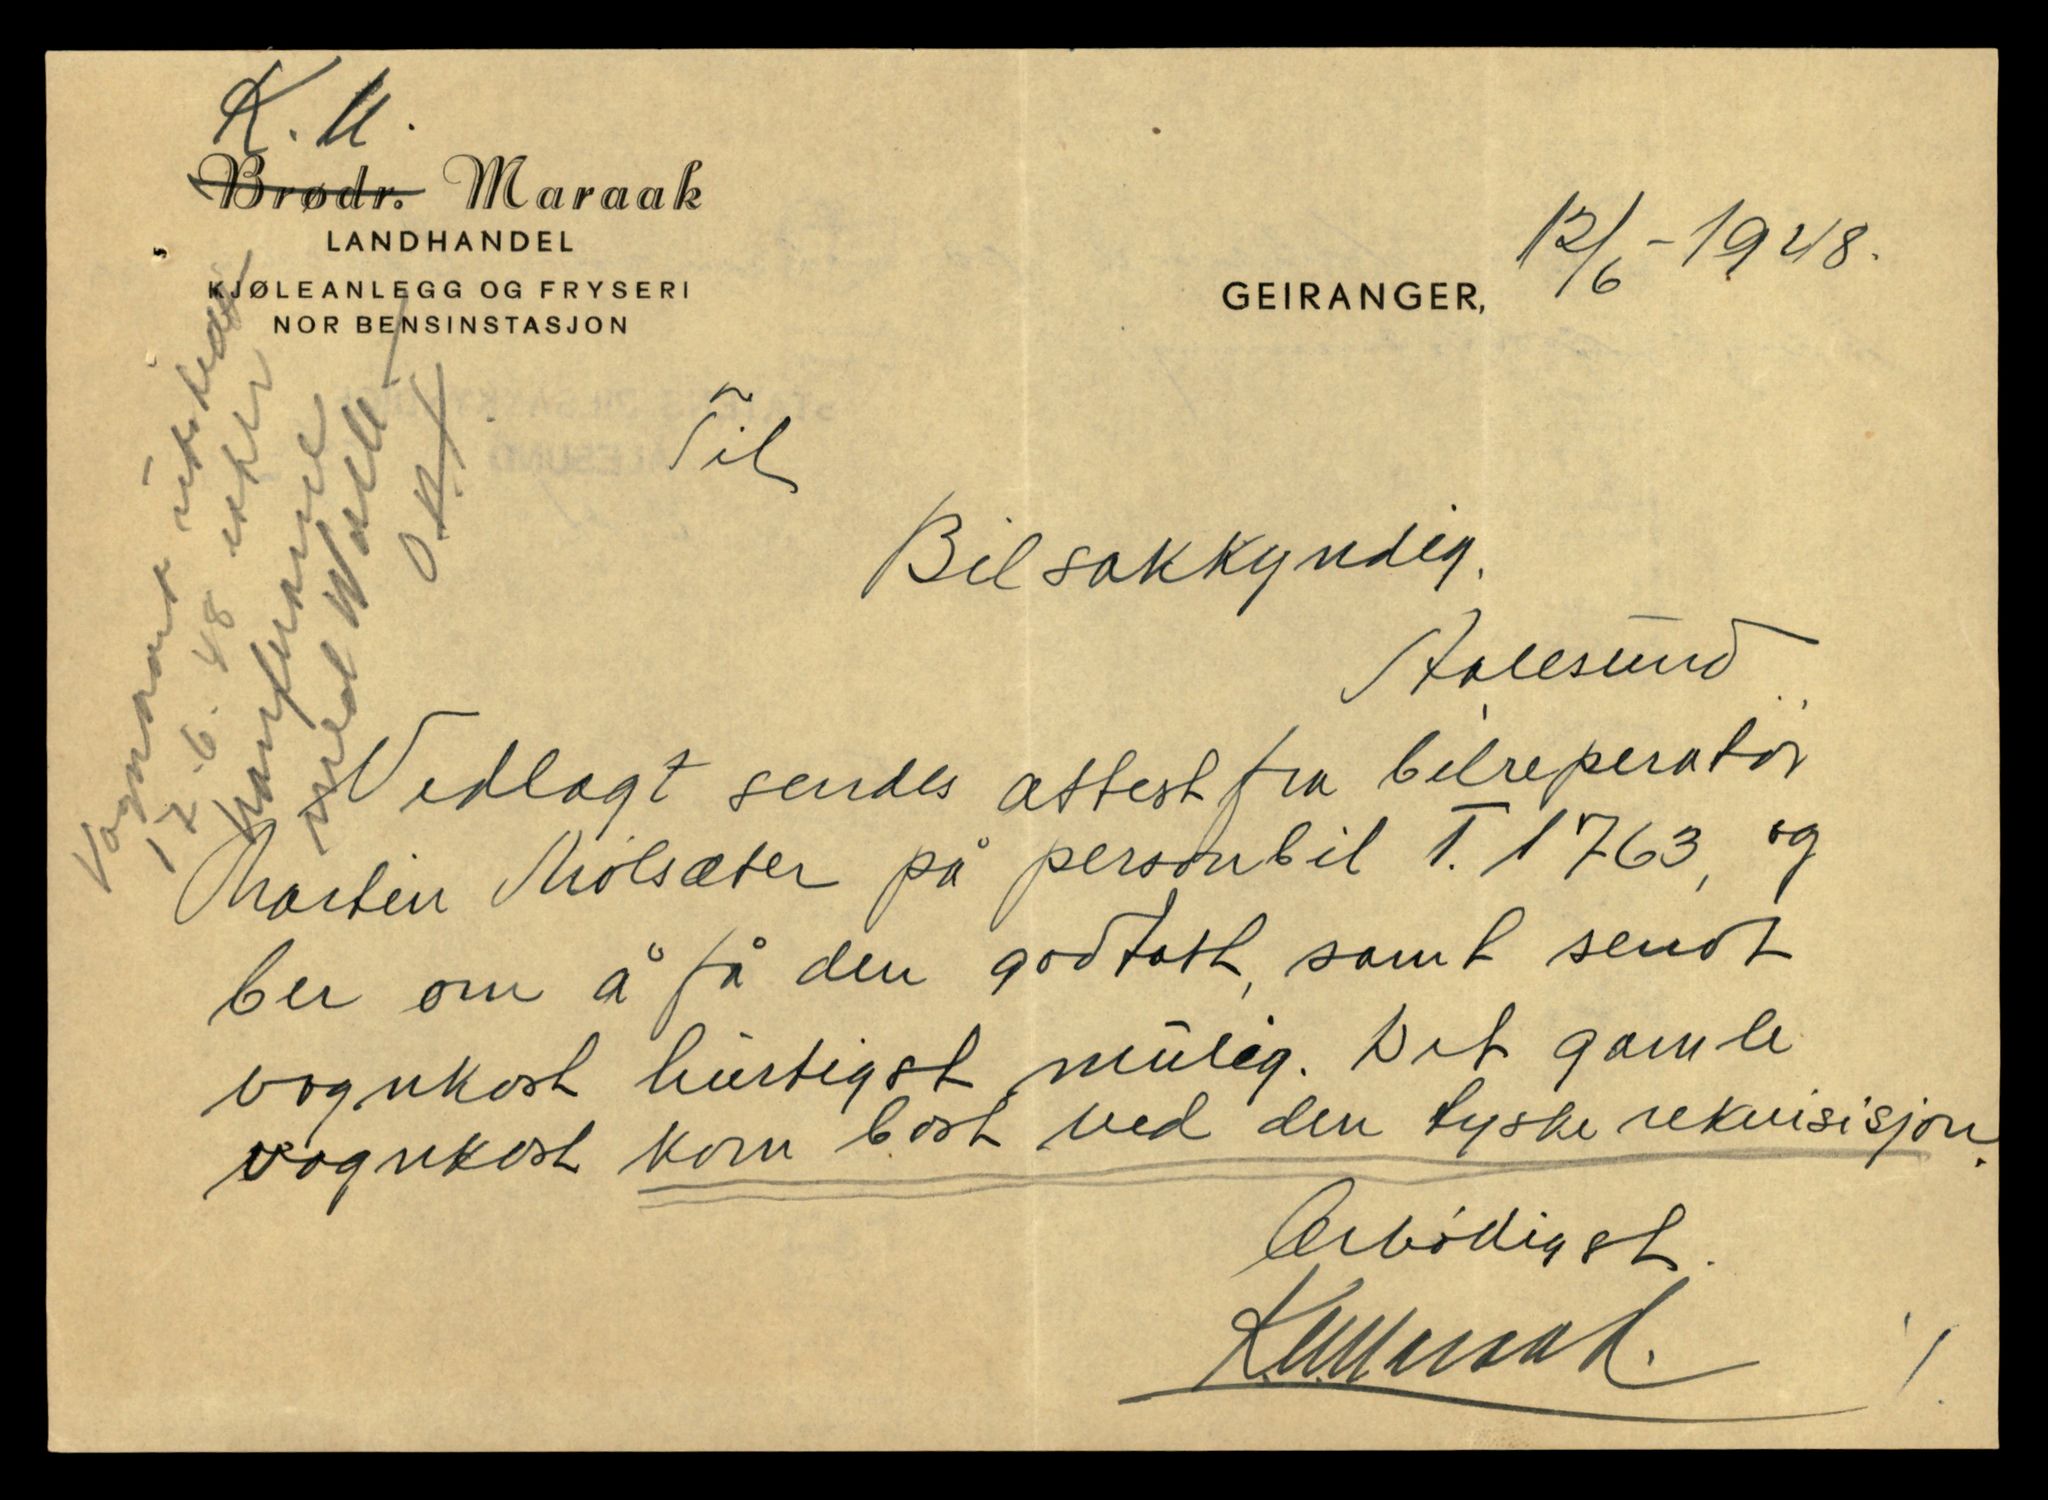 K. M.
Brødr. Maraak
LANDHANDEL
KJØLEANLEGG OG FRYSERI
NOR BENSINSTASJON
GEIRANGER, 12/6 - 1948.
Til
Bilsakkyndig.
Aalesund
Vedlagt sendes attest fra bilreperatör
Martin Molsæter på personbil T. 1763, og
ber om å få den godtatt, samt sendt
vognkort hurtigst mulig. Det gamle
vognkort kom bort ved den tyske rekvisisjon.
Ærbödigst.
K. M. Maraak.
Vognkort utstedt
17.6.48 etter
konferanse
med